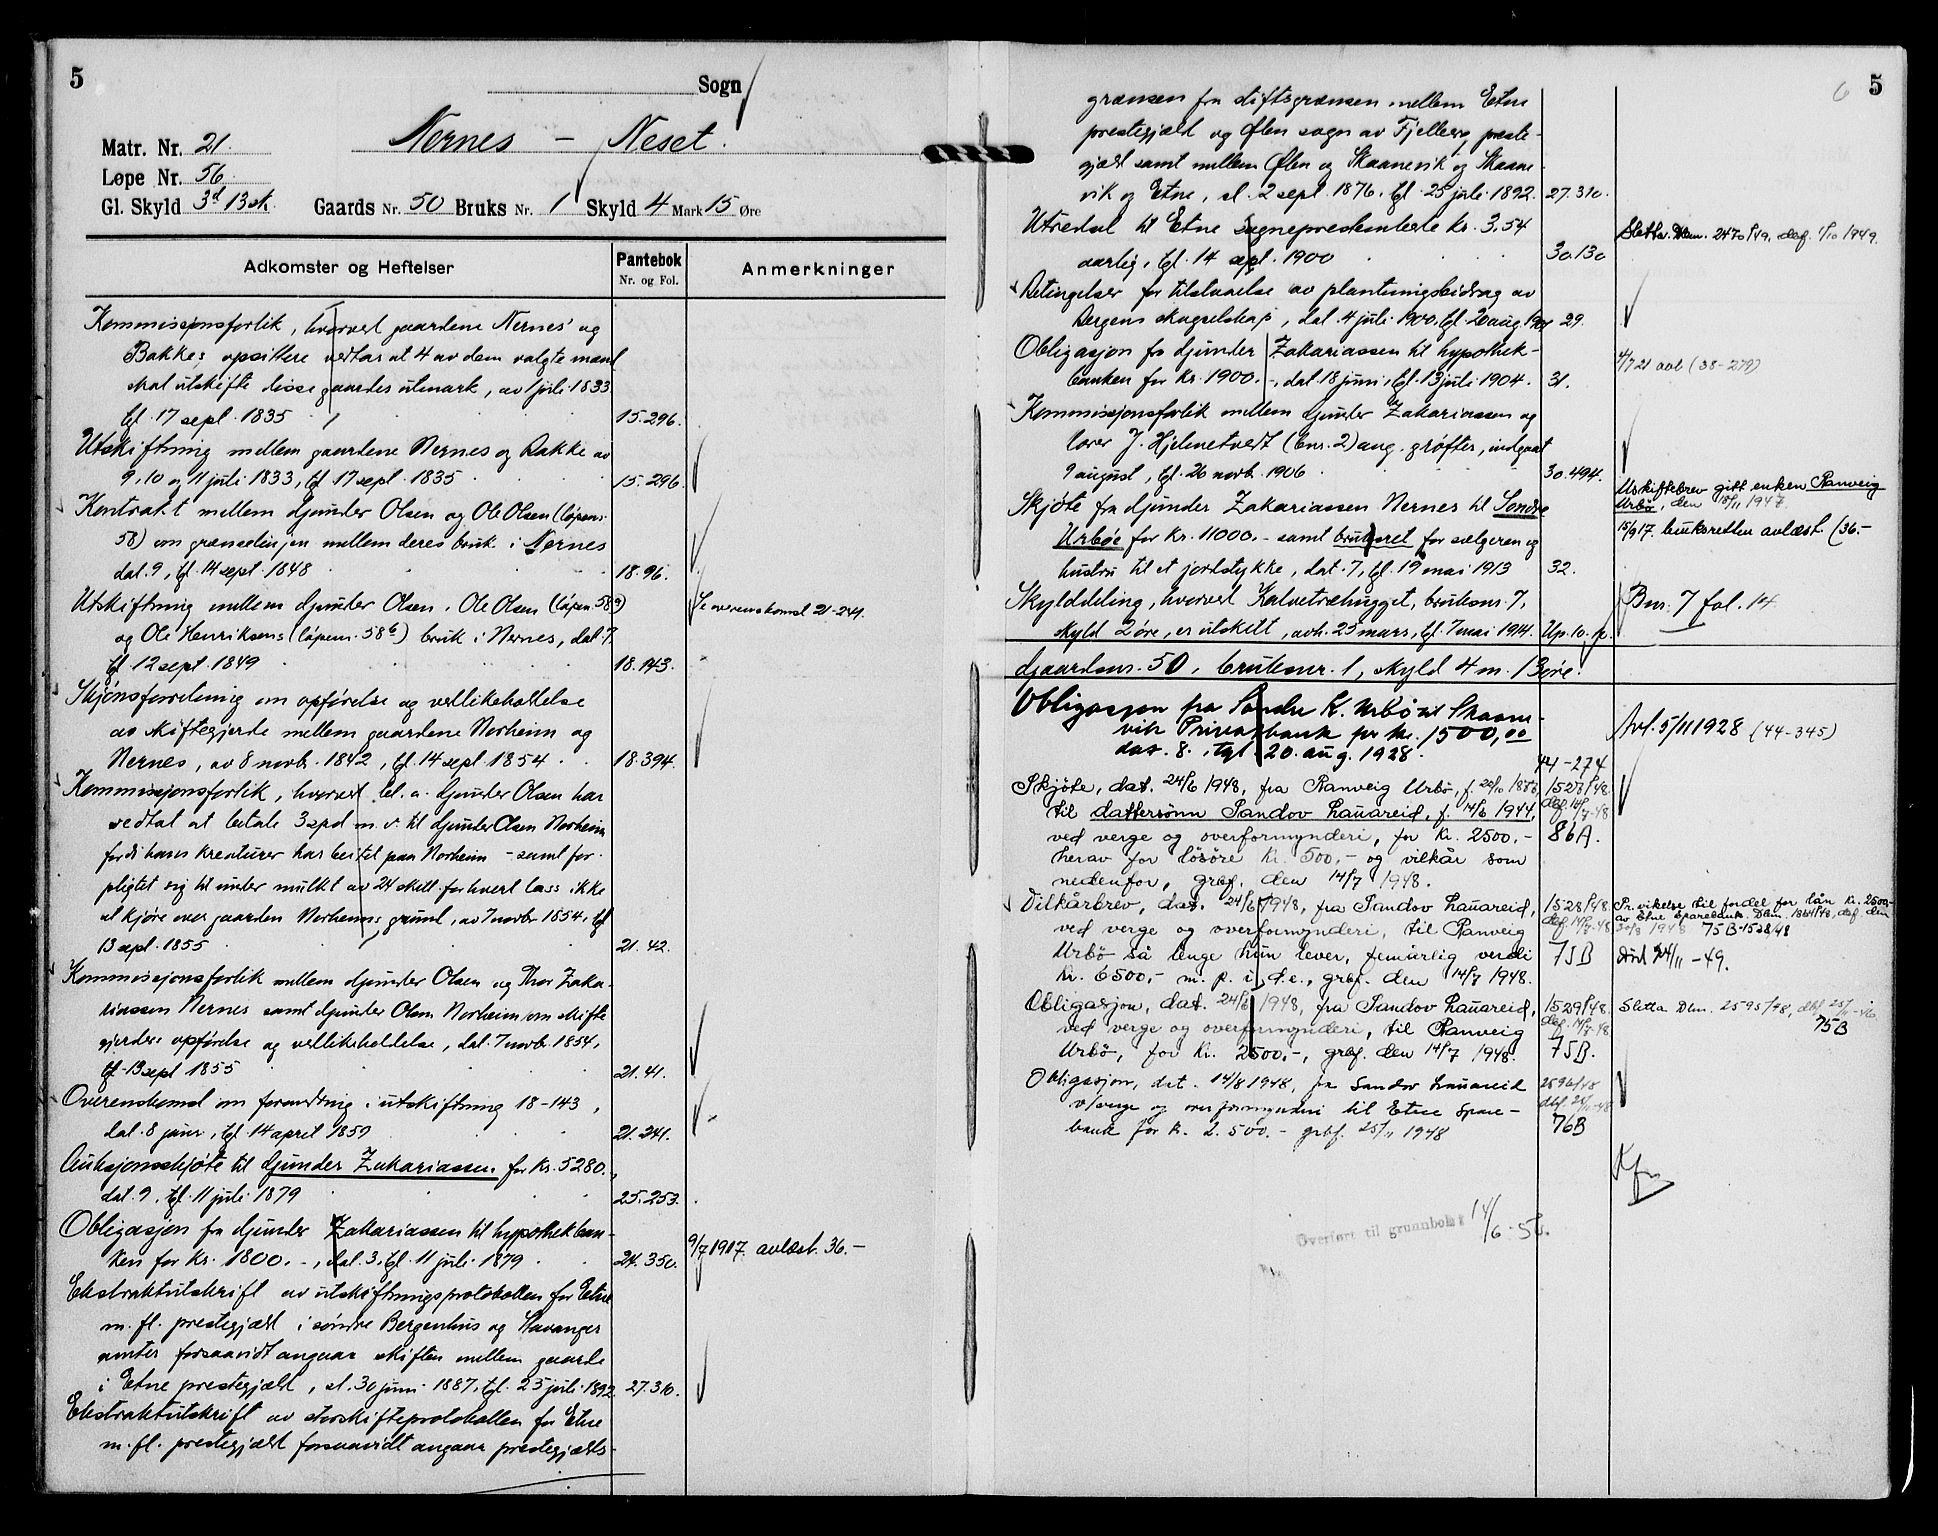 5
Sogn
Matr. Nr. 21.
Nernes - Neset.
Løpe Nr. 56
Gl. Skyld 3d 13 sk.
Gaards Nr. 50 Bruks Nr. 1 Skyld 4 Mark 15 Øre
Adkomster og Heftelser
Pantebok
Nr. og Fol.
Anmerkninger
Kommissjonsforlik, hvorved gaardene Nernes' og
Bakkes opsittere vedtar at 4 av dem valgte mænd
skal utskifte disse gaardes utmark, av 1 juli 1833
tgl. 17 sept. 1835 15.296.
Utskiftning mellem gaardene Nernes og Bakke av
9, 10 og 11 juli 1833, tgl. 17 sept. 1835 15.296.
Kontrakt mellem Gjunder Olsen og Ole Olsen (løpenr.
58) om grænselinjen mellem deres bruk i Nernes
dat. 9, tgl. 14 sept. 1848 18.96.
Utskiftning mellem Gjunder Olsen, Ole Olsen (løpenr. 58a)
og Ole Henriksens (løpenr. 58b) bruk i Nernes, dat. 7.
tgl. 12 sept. 1849 18.143.
Se overenskomst 21-241.
Skjønsforretning om opførelse og vedlikeholdelse
av skiftegjerde mellem gaardene Norheim og
Nernes, av 8 novbr. 1842, tgl. 14 sept. 1854. 18.394.
Kommissjonsforlik, hvorved bl. a. Gjunder Olsen har
vedtat at betale 3 spd m. v. til Gjunder Olsen Norheim
fordi hans kreaturer har beitet paa Norheim - samt for-
pligtet sig til under mulkt av 24 skill. for hvert lass ikke
at kjøre over gaarden Norheims grund, av 7 novbr. 1854, tgl.
13 sept. 1855 21.42.
Kommissjonsforlik mellem Gjunder Olsen og Thor Zaka-
riassen Nernes samt Gjunder Olsen Norheim om skifte
gjerders opførelse og vedlikeholdelse, dat. 7 novbr. 1854,
tgl. 13 sept. 1855 21.41.
Overenskomst om forandring i utskiftning 18-143,
dat. 8 januar, tgl. 14 april 1859 21.241.
Auksjonsskjøte til Gjunder Zakariassen for Kr. 5280.-,
dat. 9, tgl. 11 juli 1879 25.253.
Obligasjon fra Gjunder Zakariassen til hypothekban-
ken for Kr. 1800.-, dat. 3, tgl. 11 juli 1879 24.350.
9/7 1917. avlæst. 36.-
Ekstraktutskrift av utskiftningsprotokollen for Etne
m. fl. prestegjæld i søndre Bergenhus og Stavanger
amter forsaavidt angaar skiften mellem gaarde
i Etne prestegjæld, sl. 30 juni 1887, tgl. 25 juli 1892 27.310.
Ekstraktutskrift av storskifteprotokollen for Etne
m. fl. prestegjæld forsaavidt angaar prestegjælds-
6 5
grænsen fra stiftsgrænsen mellem Etne
prestegjæld og Ølen sogn av Fjelberg preste-
gjæld samt mellem Ølen og Skaanevik og Skaane-
vik og Etne, sl. 2 sept. 1876, tgl. 25 juli 1892. 27.310.
Utredsel til Etne sogneprestembede Kr. 3.54
aarlig, tgl. 14 sept. 1900 30.130
Sletta. Dbnr. 2470/49, dagf. 1/10 1949.
Betingelser for tilstaaelse av plantningsbidrag av
Bergens skogselskap, dat. 4 juli 1900, tgl. 20 aug. 1901 29.
Obligasjon fra Gjunder Zakariassen til hypothek-
banken for Kr. 1900.-, dat. 18 juni, tgl. 13 juli 1904. 31.
4/7 21 avl (38-279)
Kommissjonsforlik mellem Gjunder Zakariassen og
lærer J. Hjelmetvedt (bnr. 2) ang. grøfter, indgaat
9 august, tgl. 26 novb. 1906 30.494.
Skjøte fra Gjunder Zakariassen Nernes til Sondre
Urbøe for Kr. 11000.- samt bruksret for sælgeren og
hustru til et jordstykke, dat. 7, tgl. 19 mai 1913 32.
Uskiftebrev gitt enken Ranveig
Urbø, den 18/11 1947.
15/9 17. bruksretten avlæst. (36-
Skylddeling, hvorved Kalvetræhugget, bruksnr. 7,
skyld 2 øre, er utskilt, avh. 25 mars, tgl. 7 mai 1914.
Bnr. 7 fol. 14
Gaardsnr. 50, bruksnr. 1, skyld 4 m. 13 øre.
Obligasjon fra Sondre K. Urbø til Skaane-
vik Privatbank for kr. 1500,00
dat. 8., tgl. 20. aug. 1928. 44-274
Avl. 5/11 1928 (44-345)
Skjöte, dat. 24/6 1948, fra Ranveig Urbø, f. 20/10 1878, 1527/48.
til dattersönn Sandov Lauareid, f. 14/6 1944, dagf. 14/7-48
ved verge og overformynderi, for kr. 2500,- 86A.
herav for lösöre kr. 500,- og vilkår som
nedenfor, grbf. den 14/7 1948.
Vilkårbrev, dat. 24/6 1948, fra Sandov Lauareid, 1528/48.
ved verge og overformynderi, til Ranveig dagf. 14/7-48
Urbö så lenge hun lever, femårlig verdi 75B
kr. 6500,- m. p. i. d. e., grbf. den 14/7 1948.
Pr. vikelse til fordel for lån kr. 2500,-
av Etne Sparebank. Dbnr. 1864/48, dagf. den
30/8 1948 75B-1528/48
död 24/11-49.
Obligasjon, dat. 24/6 1948, fra Sandov Lauareid, 1529/48.
ved verge og overformynderi, til Ranveig dagf. 14/7-48
Urbö, for kr. 2500,-, grbf. den 14/7 1948. 75B.
Sletta Dbnr. 2595/48, dbf 25/11-48.
75B
Obligasjon, dat. 14/8 1948, fra Sandov Lauareid 2596/48
v/verge og overformynderi til Etne Spare- dbf. 25/11-48
bank for kr. 2.500.- grbf. 25/11 1948 76B
Overført til grunnboka 14/6-56.